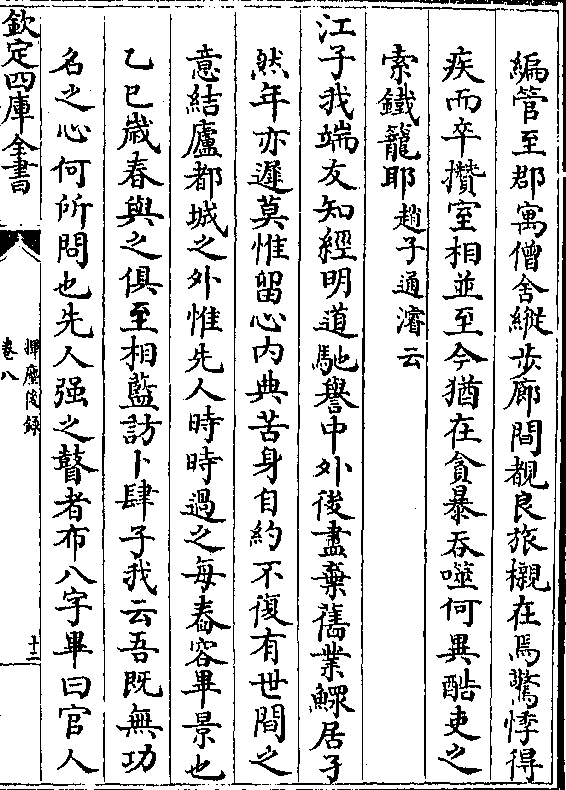 編管至郡寓僧舍縱步廊間覩良旅櫬在焉驚悸得
疾而卒攢室相並至今猶在貪暴吞噬何異酷吏之
索鐵籠耶趙子通濬云
江子我端友知經明道馳譽中外後盡棄舊業鰥居孑
然年亦遲莫惟留心内典苦身自約不復有世間之
意結廬都城之外惟先人時時過之每舂容畢景也
乙巳歲春與之俱至相藍訪卜肆子我云吾既無功
名之心何所問也先人强之瞽者布八字畢曰官人
欽定四庫全書
揮麈後録
卷八
十二